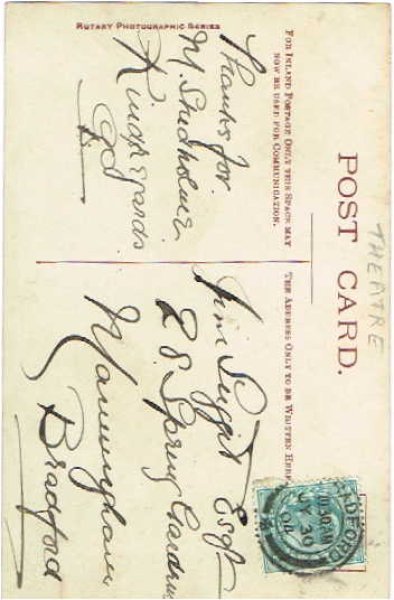 POST CARD.
THEATRE
FOR INLAND POSTAGE ONLY THIS SPACE MAY
NOW BE USED FOR COMMUNICATION.
THE ADDRESS ONLY TO BE WRITTEN HERE
Thanks for
M. Studholme
Kind regards
RUTARY PHOTOGRAPHIC SERIES
Jim Suggit Esqr
28. Spring Gardens
Manningham
Bradford
BRADFORD
10.30 AM
JY 30
04